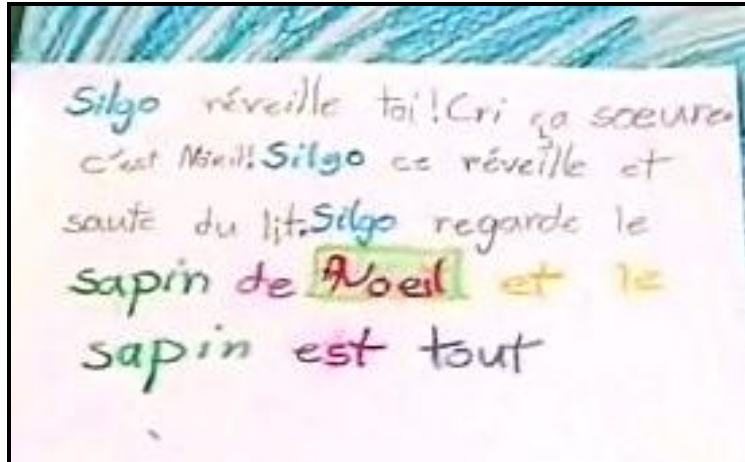 Silgo réveille toi! Cri ça soeure.
c'est Nöeil! Silgo ce réveille et
saute du lit. Silgo regarde le
sapin de Noeil et le
sapin est tout